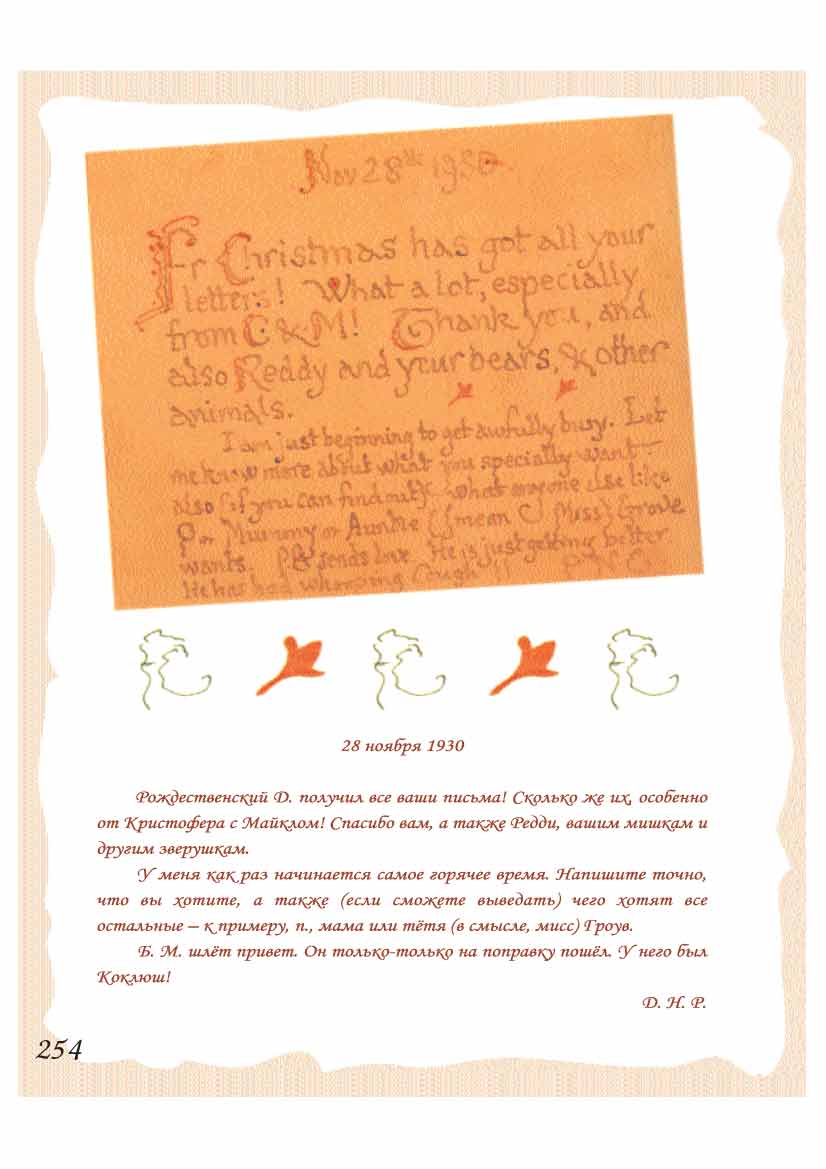 Nov 28th 1930.
Fr Christmas has got all your
letters! What a lot, especially
from C & M! Thank you, and
also Reddy and your bears, & other
animals.
I am just beginning to get awfully busy. Let
me know more about what you specially want –
also (if you can find out) what anyone else like
P or Mummy or Auntie (I mean Miss) Grove
wants. PB sends love. He is just getting better.
He has had whooping Cough!!
28 ноября 1930
Рождественский Д. получил все ваши письма! Сколько же их, особенно
от Кристофера с Майклом! Спасибо вам, а также Редди, вашим мишкам и
другим зверушкам.
У меня как раз начинается самое горячее время. Напишите точно,
что вы хотите, а также (если сможете выведать) чего хотят все
остальные – к примеру, п., мама или тётя (в смысле, мисс) Гроув.
Б. М. шлёт привет. Он только-только на поправку пошёл. У него был
Коклюш!
Д. Н. Р.
254